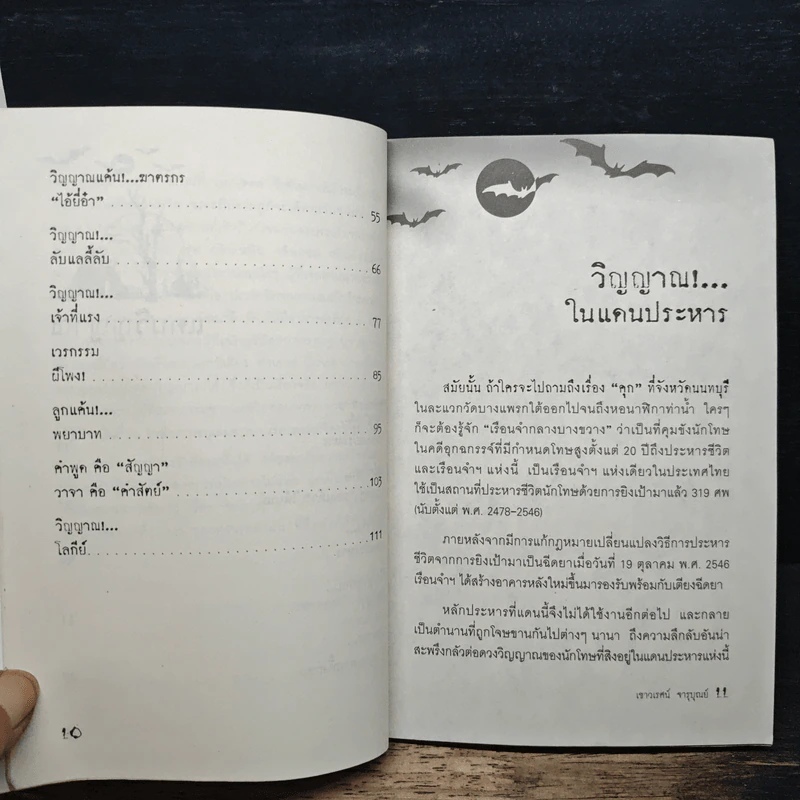 วิญญาณแค้น!...ฆาตรกร
“ไอ้ยี่อ๋ำ” 55
วิญญาณ!...
ลับแลลี้ลับ 66
วิญญาณ!...
เจ้าที่แรง 77
เวรกรรม
ผีโพง! 85
ลูกแค้น!...
พยาบาท 95
คำพูด คือ “สัญญา”
วาจา คือ “คำสัตย์” 103
วิญญาณ!...
โลกีย์ 111
10
วิญญาณ!...
ในแดนประหาร
สมัยนั้น ถ้าใครจะไปถามถึงเรื่อง “คุก” ที่จังหวัดนนทบุรี
ในละแวกวัดบางแพรกใต้ออกไปจนถึงหอนาฬิกาท่าน้ำ ใครๆ
ก็จะต้องรู้จัก “เรือนจำกลางบางขวาง” ว่าเป็นที่คุมขังนักโทษ
ในคดีอุกฉกรรจ์ที่มีกำหนดโทษสูงตั้งแต่ 20 ปีถึงประหารชีวิต
และเรือนจำฯ แห่งนี้ เป็นเรือนจำฯ แห่งเดียวในประเทศไทย
ใช้เป็นสถานที่ประหารชีวิตนักโทษด้วยการยิงเป้ามาแล้ว 319 ศพ
(นับตั้งแต่ พ.ศ. 2478-2546)
ภายหลังจากมีการแก้กฎหมายเปลี่ยนแปลงวิธีการประหาร
ชีวิตจากการยิงเป้ามาเป็นฉีดยาเมื่อวันที่ 19 ตุลาคม พ.ศ. 2546
เรือนจำฯ ได้สร้างอาคารหลังใหม่ขึ้นมารองรับพร้อมกับเตียงฉีดยา
หลักประหารที่แดนนี้จึงไม่ได้ใช้งานอีกต่อไป และกลาย
เป็นตำนานที่ถูกโจษขานกันไปต่างๆ นานา ถึงความลึกลับอันน่า
สะพรึงกลัวต่อดวงวิญญาณของนักโทษที่สิงอยู่ในแดนประหารแห่งนี้
เชาวเรศน์ จารุบุณย์ 11